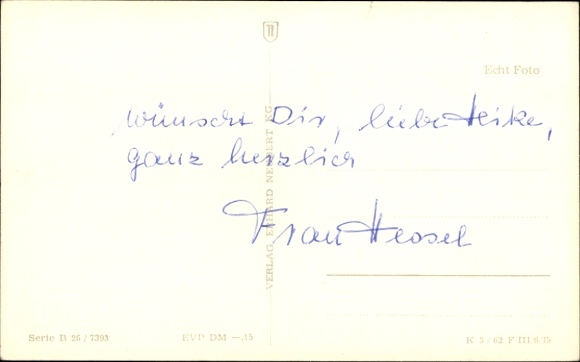 Echt Foto
wünscht Dir, liebe Heike,
ganz herzlich
Frau Hessel
VERLAG ERHARD NEUBERT KG
Serie B 26 / 7393
EVP DM —.15
K 5 / 62 F III/6/75